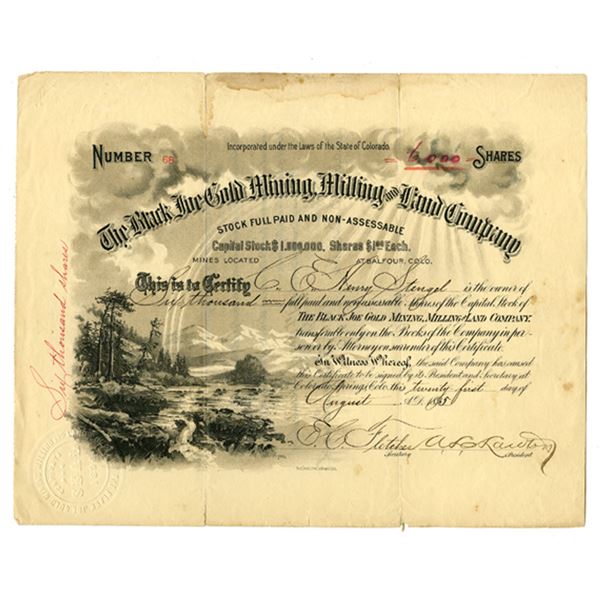 Incorporated under the Laws of the State of Colorado.
NUMBER 68 6,000 SHARES
The Black Joe Gold Mining, Milling and Land Company
STOCK FULL PAID AND NON-ASSESSABLE
Capital Stock $1,000,000, Shares $1.00 Each.
MINES LOCATED AT BALFOUR, COLO.
This is to Certify C. E. Henry Stengel is the owner of
Six thousand full paid and nonassessable Shares of the Capital Stock of
THE BLACK JOE GOLD MINING, MILLING AND LAND COMPANY.
transferable only on the Books of the Company in per-
son or by Attorney on surrender of this Certificate.
In Witness Whereof, the said Company has caused
this Certificate to be signed by its President and Secretary at
Colorado Springs, Colo. this twenty first day of
August A.D. 1895
E. C. Fletcher
Secretary President
Six thousand shares
SEAL